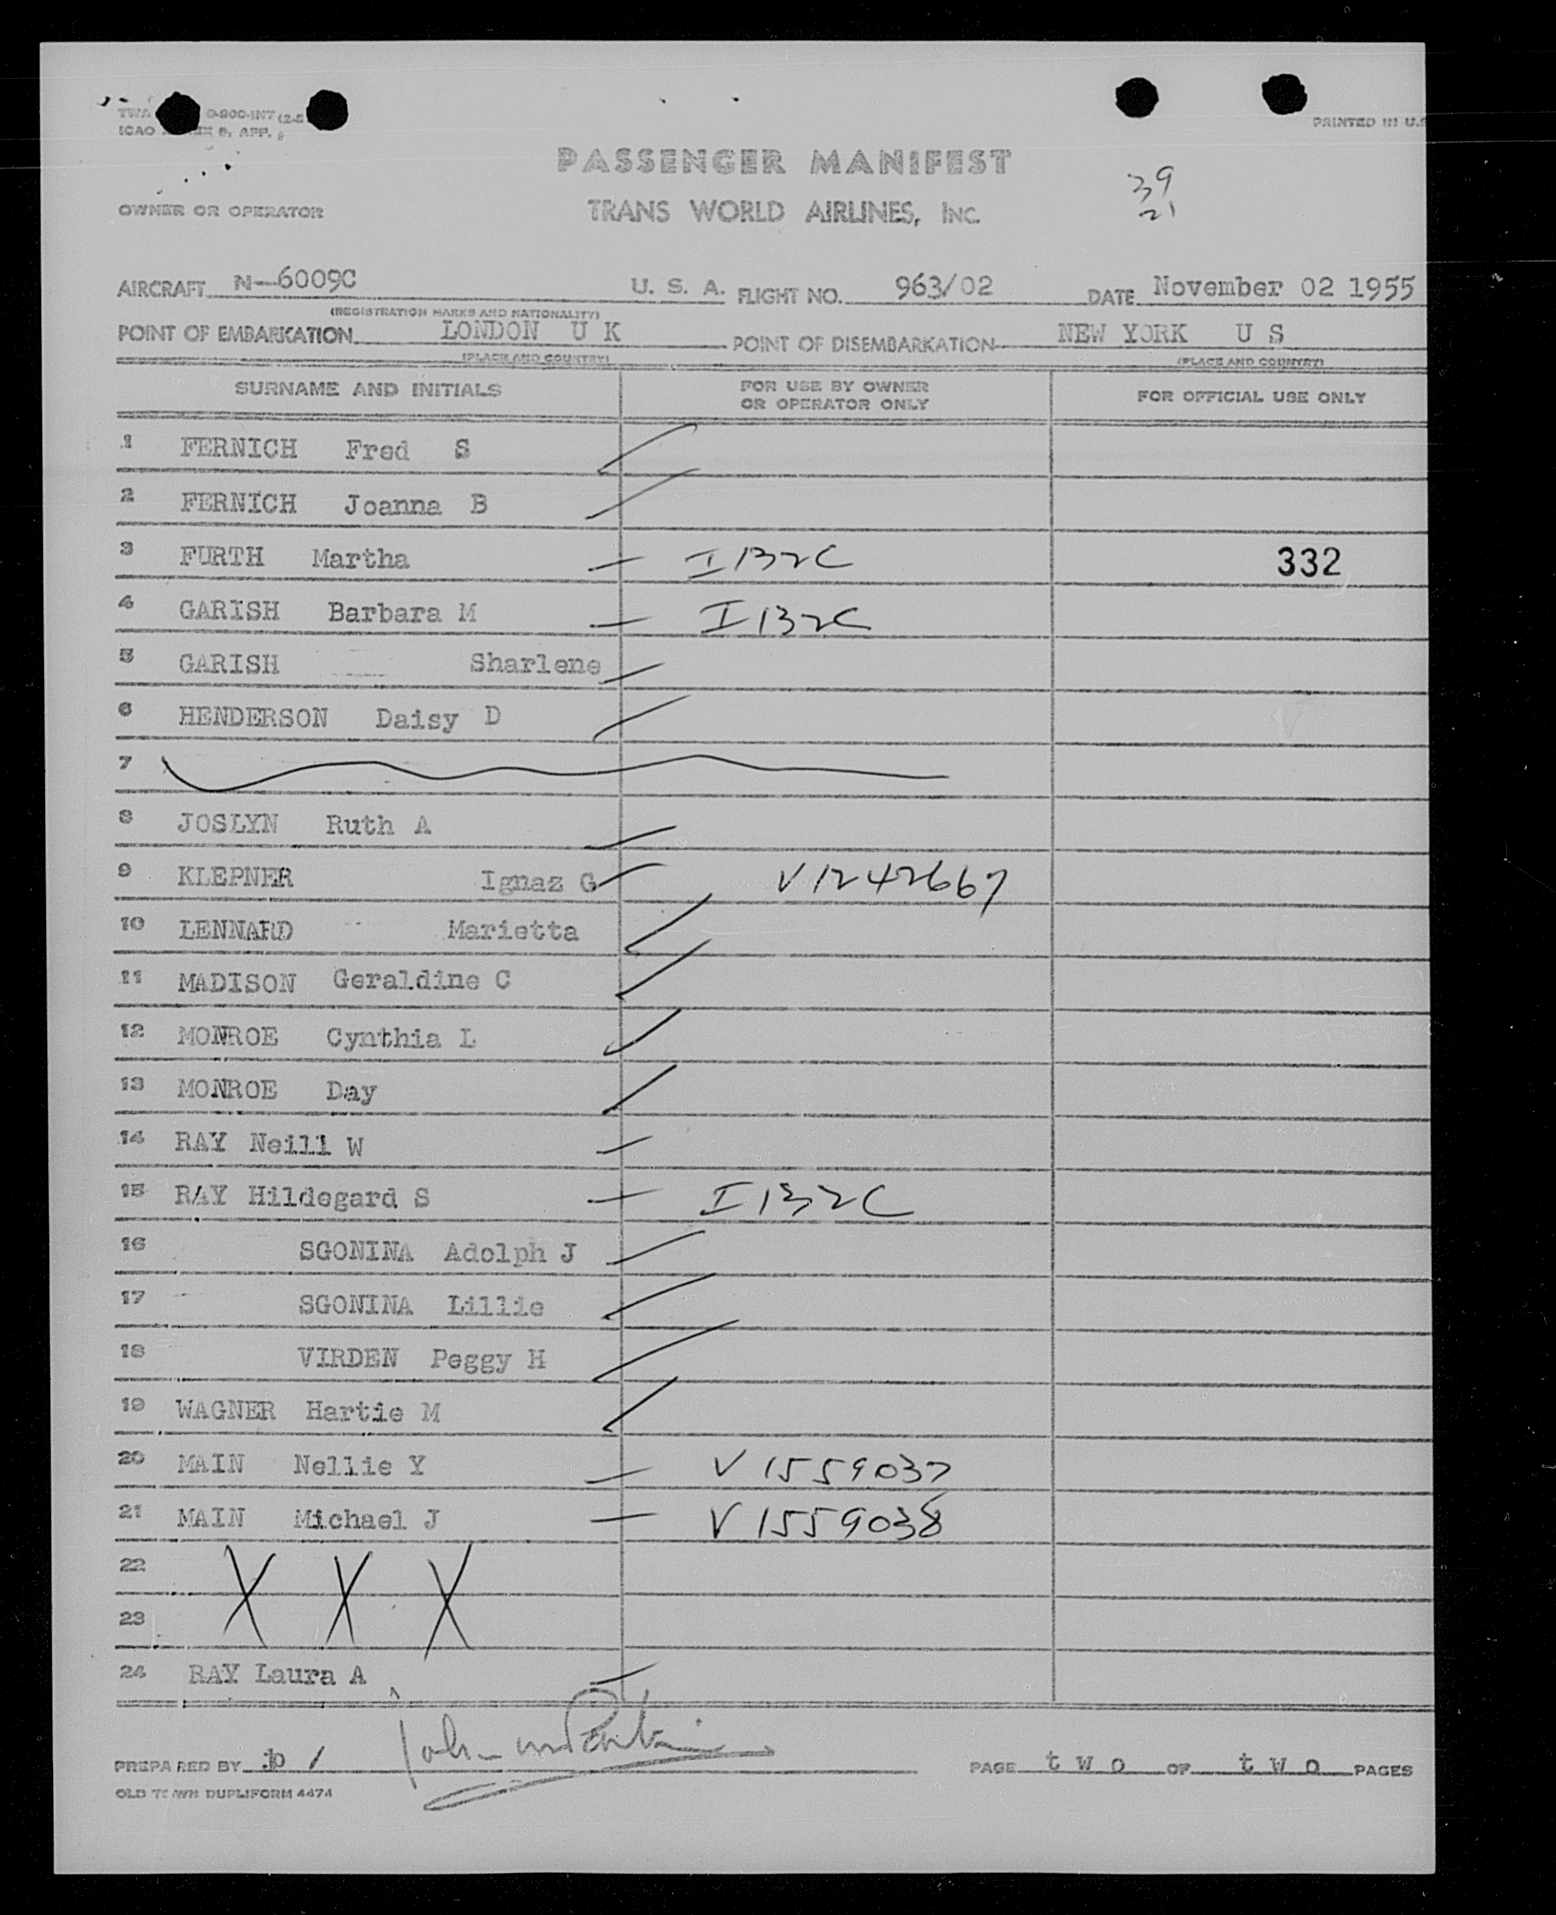 PRINTED IN U.S
ICAO
PASSENGER MANIFEST
39
21
OWNER OR OPERATOR TRANS WORLD AIRLINES, INC.
AIRCRAFT N-6009C U. S. A. FLIGHT NO. 963/02 DATE November 02 1955
(REGISTRATION MARKS AND NATIONALITY)
POINT OF EMBARKATION LONDON U K POINT OF DISEMBARKATION NEW YORK U S
(PLACE AND COUNTRY) (PLACE AND COUNTRY)
SURNAME AND INITIALS FOR USE BY OWNER OR OPERATOR ONLY FOR OFFICIAL USE ONLY
1 FERNICH Fred S
2 FERNICH Joanna B
3 FURTH Martha I 132C 332
4 GARISH Barbara M I 132C
5 GARISH Sharlene
6 HENDERSON Daisy D
7
8 JOSLYN Ruth A
9 KLEPNER Ignaz G V1242667
10 LENNARD Marietta
11 MADISON Geraldine C
12 MONROE Cynthia L
13 MONROE Day
14 RAY Neill W
15 RAY Hildegard S I 132C
16 SGONINA Adolph J
17 SGONINA Lillie
18 VIRDEN Peggy H
19 WAGNER Hartie M
20 MAIN Nellie Y V 1559037
21 MAIN Michael J V 1559038
22 X X X
23
24 RAY Laura A
PREPARED BY jb / PAGE t w o OF t w o PAGES
OLD TOWN DUPLIFORM 4474